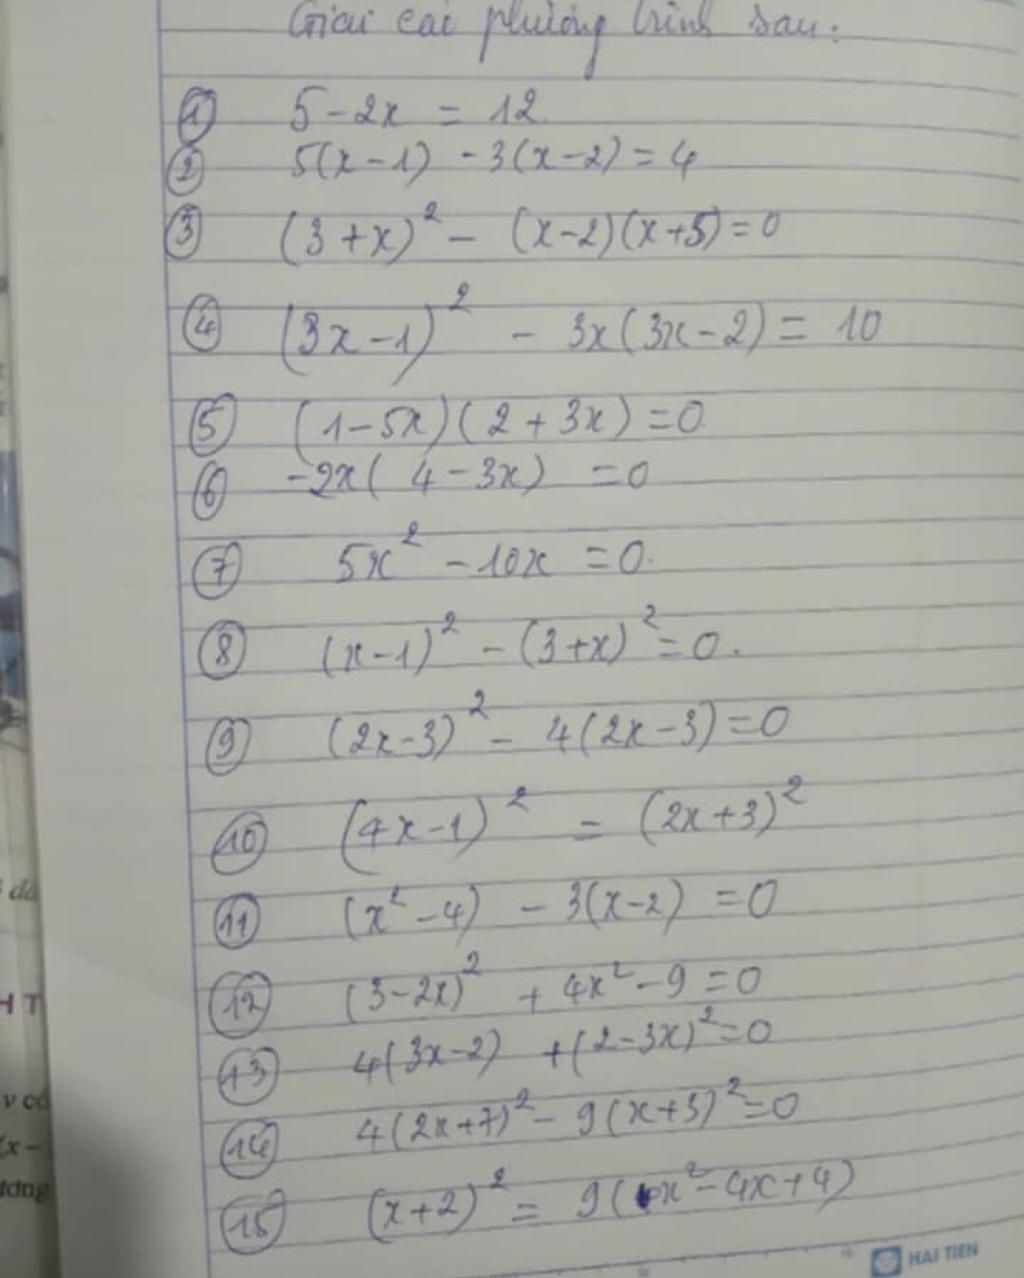 Giải các phương trình sau:
① 5 - 2x = 12
② 5(x - 1) - 3(x - 2) = 4
③ (3 + x)² - (x - 2)(x + 5) = 0
④ (3x - 1)² - 3x(3x - 2) = 10
⑤ (1 - 5x)(2 + 3x) = 0
⑥ -2x( 4 - 3x) = 0
⑦ 5x² - 10x = 0.
⑧ (x - 1)² - (3 + x)² = 0.
⑨ (2x - 3)² - 4(2x - 3) = 0
⑩ (4x - 1)² = (2x + 3)²
⑪ (x² - 4) - 3(x - 2) = 0
⑫ (3 - 2x)² + 4x² - 9 = 0
⑬ 4(3x - 2) + (2 - 3x)² = 0
⑭ 4(2x + 7)² - 9(x + 3)² = 0
⑮ (x + 2)² = 9(x² - 4x + 4)
HẢI TIẾN